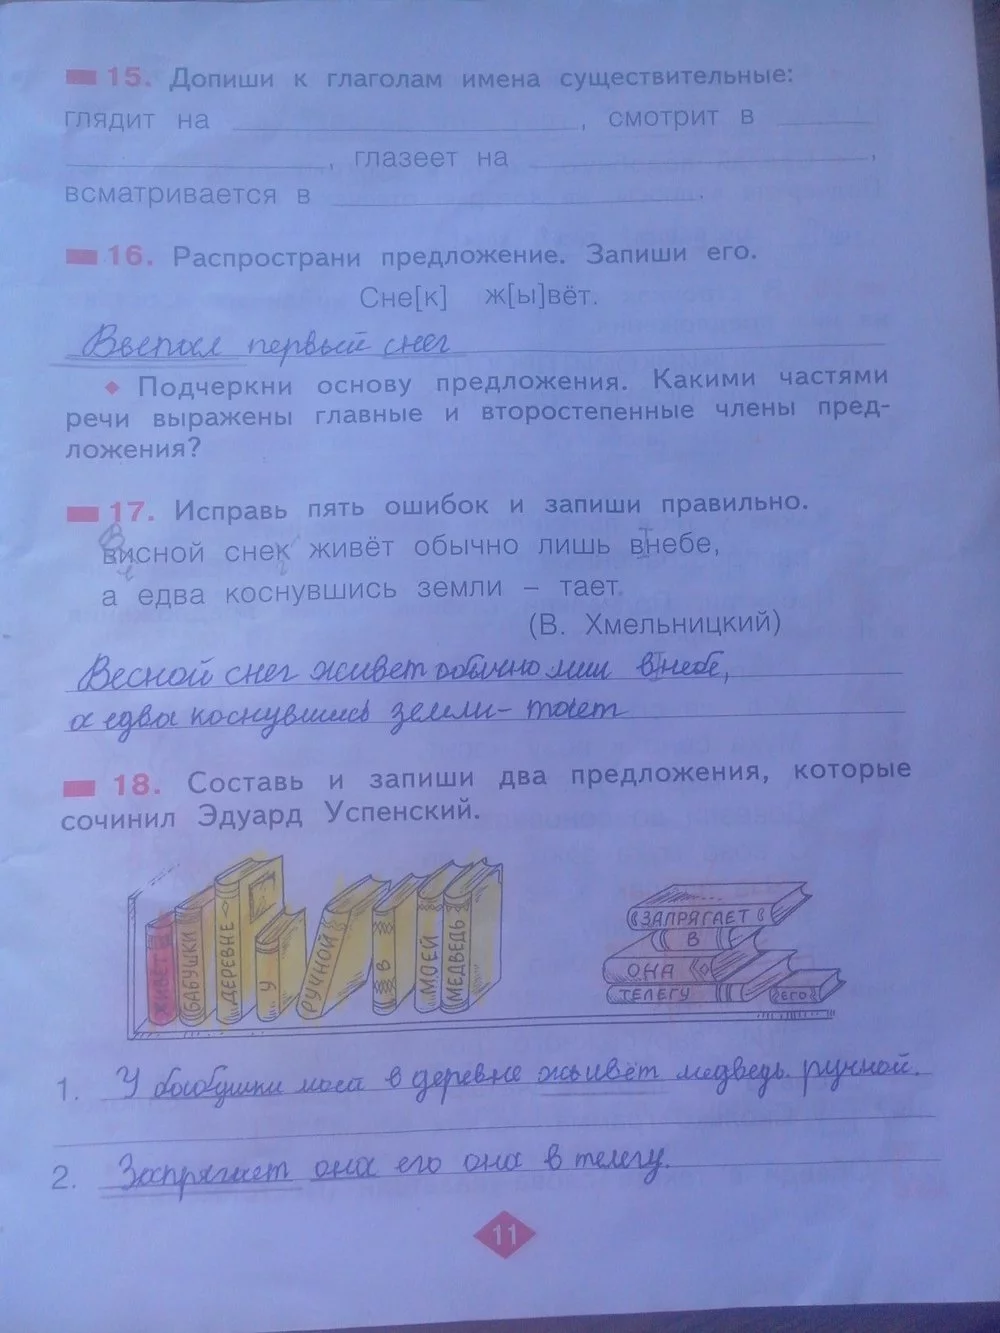 15. Допиши к глаголам имена существительные:
глядит на ____, смотрит в ____
____, глазеет на ____,
всматривается в ____.
16. Распространи предложение. Запиши его.
Сне[к] ж[ы]вёт.
Выпал первый снег
Подчеркни основу предложения. Какими частями
речи выражены главные и второстепенные члены пред-
ложения?
17. Исправь пять ошибок и запиши правильно.
висной снек живёт обычно лишь внебе,
а едва коснувшись земли – тает.
(В. Хмельницкий)
Весной снег живет обычно лиш в небе,
а едва коснувшись земли – тает
18. Составь и запиши два предложения, которые
сочинил Эдуард Успенский.
ЖИВЁТ БАБУШКИ ДЕРЕВНЕ У РУЧНОЙ В МОЕЙ МЕДВЕДЬ
ЗАПРЯГАЕТ
В
ОНА
ТЕЛЕГУ ЕГО
1. У бабушки моеа в деревне жьивёт медведь ручной.
2. Запрягает она его она в телегу.
11